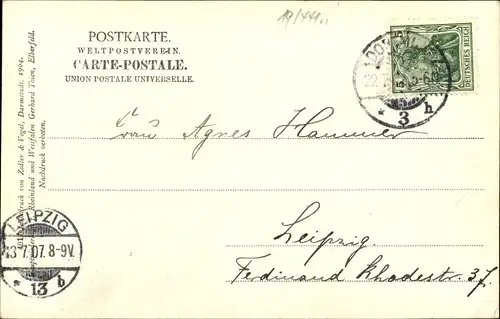 19/4491.
POSTKARTE.
WELTPOSTVEREIN.
CARTE-POSTALE.
UNION POSTALE UNIVERSELLE.
DEUTSCHES REICH
* 3 h
Frau Agnes Hammer
Leipzig
Ferdinand Rhodestr. 37.
druck von Zedler & Vogel, Darmstadt. 1904.
Rheinland und Westfalen Gerhard Tolen, Elberfeld.
Nachdruck verboten.
LEIPZIG
13.7.07. 8-9V.
* 13 b